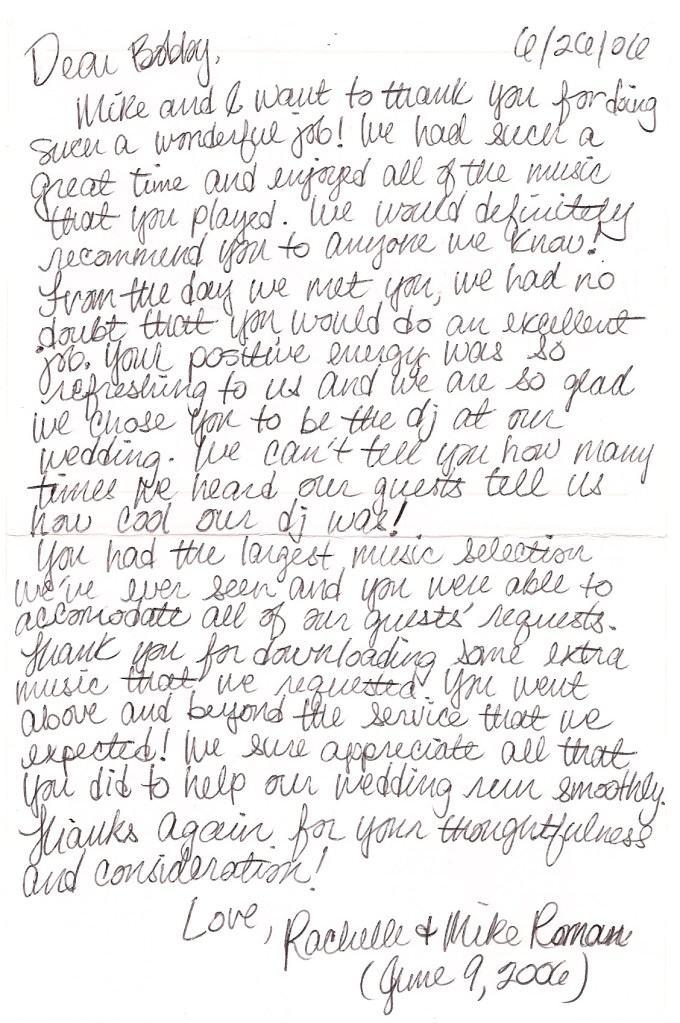 Dear Bobby, 6/26/06
Mike and I want to thank you for doing
such a wonderful job! We had such a
great time and enjoyed all of the music
that you played. We would definitely
recommend you to anyone we know!
From the day we met you, we had no
doubt that you would do an excellent
job. Your positive energy was so
refreshing to us and we are so glad
we chose you to be the dj at our
wedding. We can't tell you how many
times we heard our guests tell us
how cool our dj was!
You had the largest music selection
we've ever seen and you were able to
accomodate all of our guests' requests.
Thank you for downloading some extra
music that we requested. You went
above and beyond the service that we
expected! We sure appreciate all that
you did to help our wedding run smoothly.
Thanks again for your thoughtfulness
and consideration!
Love, Rachelle & Mike Roman
(June 9, 2006)